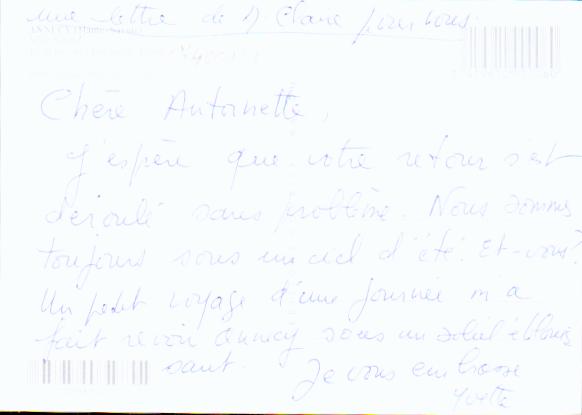 une lettre de Claire pour vous.
ANNECY (Haute-Savoie)
Chère Antoinette,
J'espère que votre retour s'est
déroulé sans problème. Nous sommes
toujours sous un ciel d'été. Et-vous?
Un petit voyage d'une journée m'a
fait revoir Annecy sous un soleil éblouis
sant. Je vous embrasse
Yvette